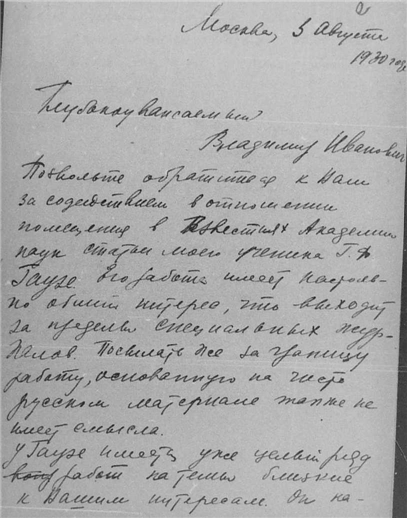 Москва, 3 Августа
1930 года
Глубокоуважаемый
Владимир Иванович
Позвольте обратиться к Вам
за содействием в отношении
помещения в Известиях Академии
наук статьи моего ученика Г.Ф
Гаузе. Его работа имеет настоль-
ко общий интерес, что выходит
за пределы специальных жур-
налов. Посылать же за границу
работу, основанную на чисто
русском материале также не
имеет смысла.
У Гаузе имеется уже целый ряд
работ на темы близкие
к Вашим интересам. Он на-